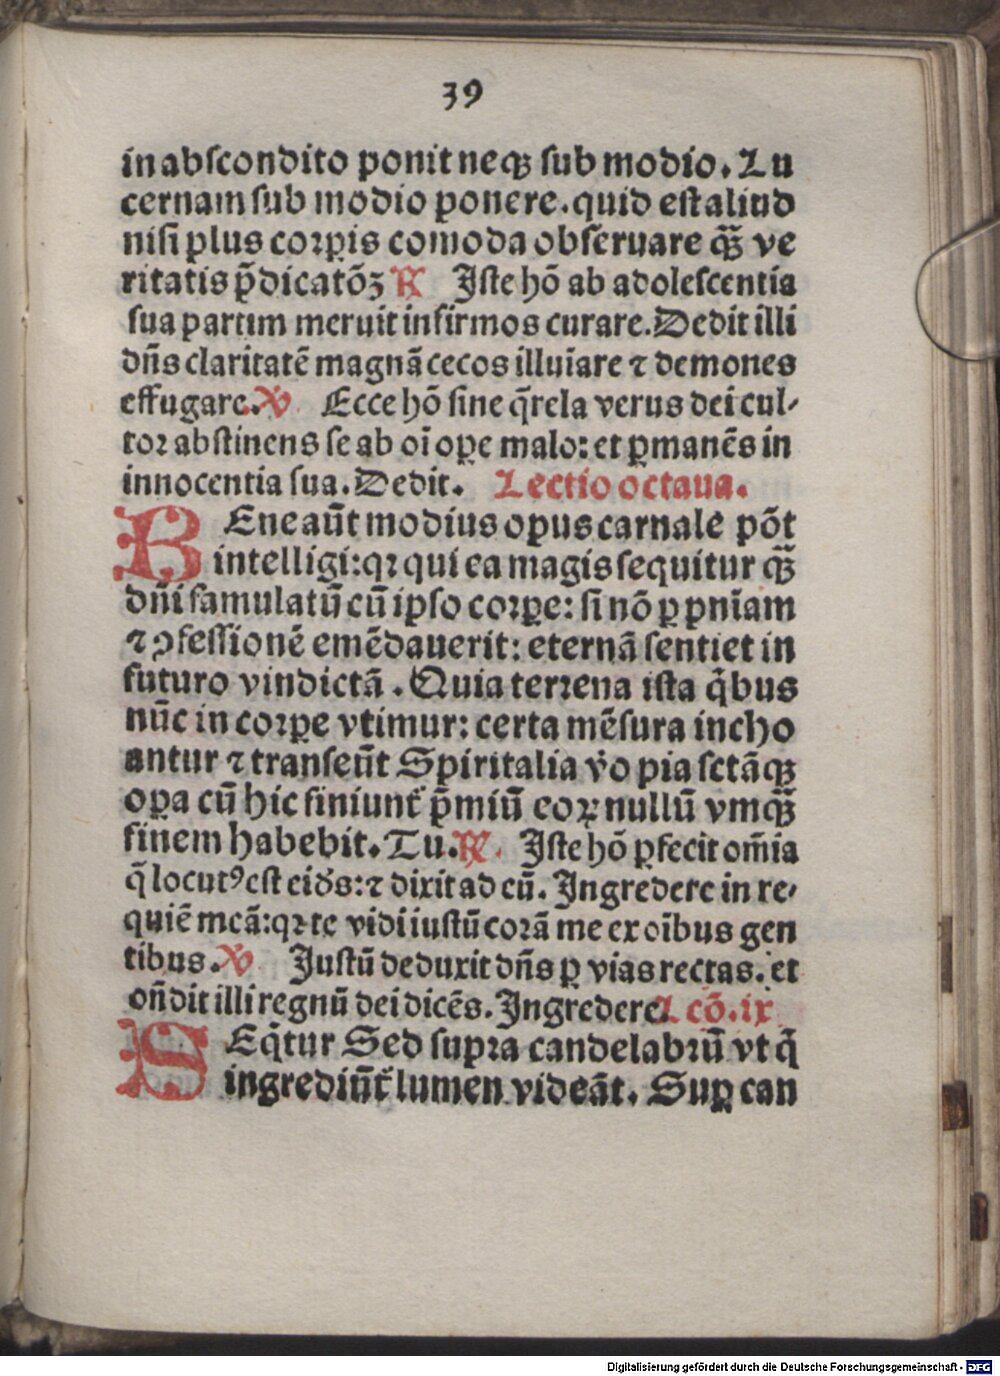 39
in abscondito ponit neqꝫ sub modio. Lu
cernam sub modio ponere. quid est aliud
nisi plus corꝑis comoda obseruare qᷓꝫ ve
ritatis p̄dicatōꝫ ℟ Iste hō ab adolescentia
sua partim meruit infirmos curare. Dedit illi
dn̄s claritatē magnā cecos illuīare ⁊ demones
effugare. ℣ Ecce hō sine q̄rela verus dei cul⸗
tor abstinens se ab oī oꝑe malo: et ꝑmanēs in
innocentia sua. Dedit. Lectio octaua.
BEne aūt modius opus carnale pōt
intelligi: qꝛ qui ea magis sequitur qᷓꝫ
dn̄i famulatū cū ipso corꝑe: si nō ꝑ pn̄iam
⁊ ꝯfessionē emēdauerit: eternā sentiet in
futuro vindictā. Quia terrena ista q̇bus
nūc in corꝑe vtimur: certa mēsura incho
antur ⁊ transeūt Spiritalia v̇o pia sctāqꝫ
oꝑa cū hic finiunt᷑ p̄miū eoꝝ nullū vmqᷓꝫ
finem habebit. Tu. ℟. Iste hō ꝑfecit om̄ia
q̄ locutꝰ est ei ds̄: ⁊ dixit ad eū. Ingredere in re⸗
quiē meā: qꝛ te vidi iustū corā me ex oībus gen
tibus. ℣ Iustū deduxit dn̄s ꝑ vias rectas. et
on̄dit illi regnū dei dicēs. Ingredere. Lcō. ix
SEq̇tur Sed supra candelabrū vt q̇
ingrediūt᷑ lumen videāt. Suꝑ can
Digitalisierung gefördert durch die Deutsche Forschungsgemeinschaft - DFG